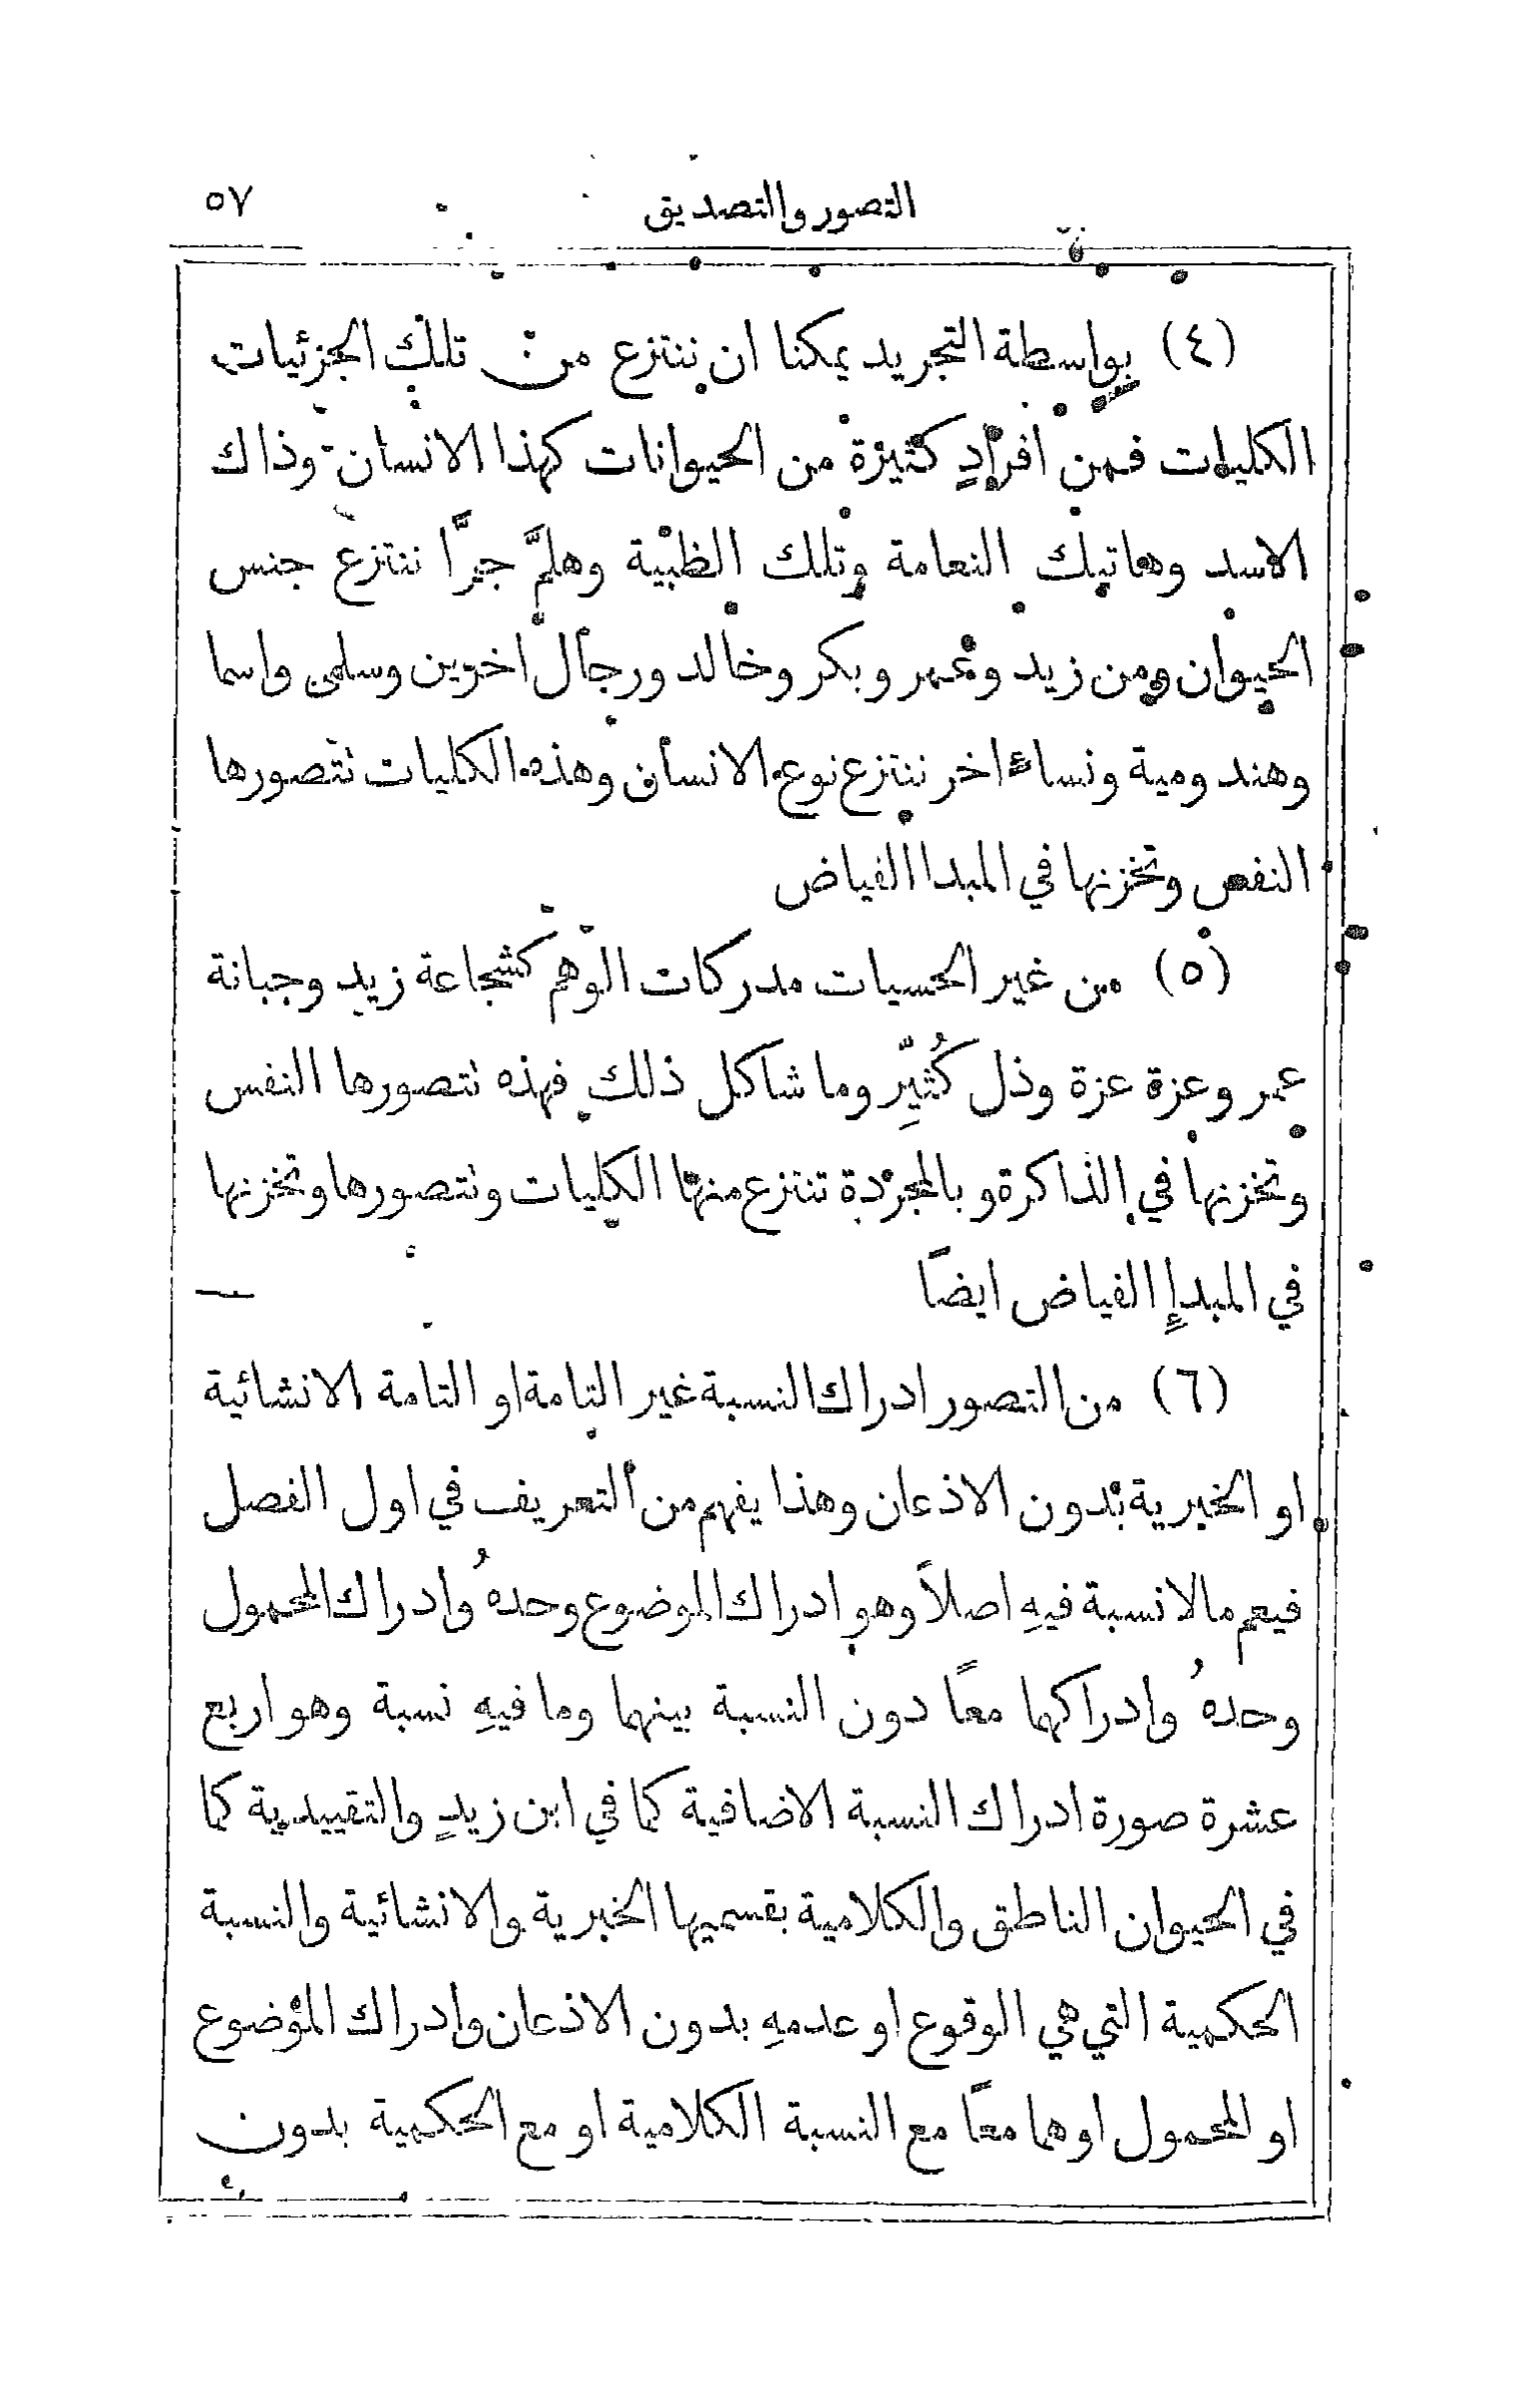 التصور والتصديق ٥٧
(٤) بواسطة التجريد يمكنا ان ننتزع من تلك الجزئيات
الكليات فمن افرادٍ كثيرة من الحيوانات كهذا الانسان وذاك
الاسد وهاتيك النعامة وتلك الظبية وهلمَّ جرًّا ننتزع جنس
الحيوان ومن زيد وعمر وبكر وخالد ورجال اخرين وسلمى واسما
وهند ومية ونساء اخر ننتزع نوع الانسان وهذه الكليات نتصورها
النفس وتخزنها في المبدا الفياض
(٥) من غير الحسيات مدركات الوهم كشجاعة زيد وجبانة
عمر وعزة عزة وذل كُثيّرِ وما شاكل ذلك فهذه نتصورها النفس
وتخزنها في الذاكرة وبالمجردة تنتزع منها الكليات ونتصورها وتخزنها
في المبدإ الفياض ايضاً
(٦) من التصور ادراك النسبة غير التامة او التامة الانشائية
او الخبرية بدون الاذعان وهذا يفهم من التعريف في اول الفصل
فيعم ما لا نسبة فيهِ اصلاً وهو ادراك الموضوع وحدهُ وادراك المحمول
وحدهُ وادراكهما معاً دون النسبة بينهما وما فيهِ نسبة وهو اربع
عشرة صورة ادراك النسبة الاضافية كما في ابن زيدٍ والتقييدية كما
في الحيوان الناطق والكلامية بقسميها الخبرية والانشائية والنسبة
الحكمية التي هي الوقوع او عدمهِ بدون الاذعان وادراك الموضوع
او المحمول او هما معاً مع النسبة الكلامية او مع الحكمية بدون